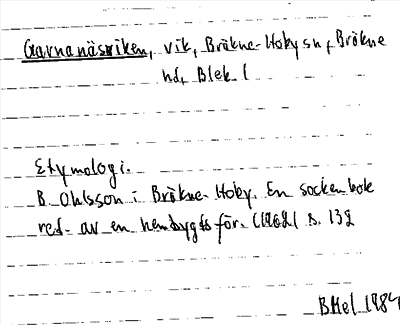 Garnanäsviken, vik, Bräkne-Hoby sn, Bräkne
hd, Blek l
Etymologi.
B. Ohlsson i Bräkne-Hoby. En sockenbok
red. av en hembygdsför. (1962) s. 132
BHel 1984